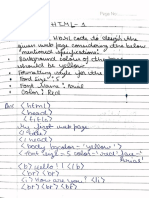 Page No.
HTML-1
HTML code to design the
given web page considering the below
mentioned specifications:
Background colour of the
should be yellow.
Formatting style for the
Font size: 5
Font Name: Arial
Color: Red
Ans: <html>
<head>
<title>
My first web page
</title>
</head>
<body bgcolor='yellow'>
<font size=5 color='red'
<b> Hello!! <b>
<br> <br>
<i> How are you? </i>
<br> <br>